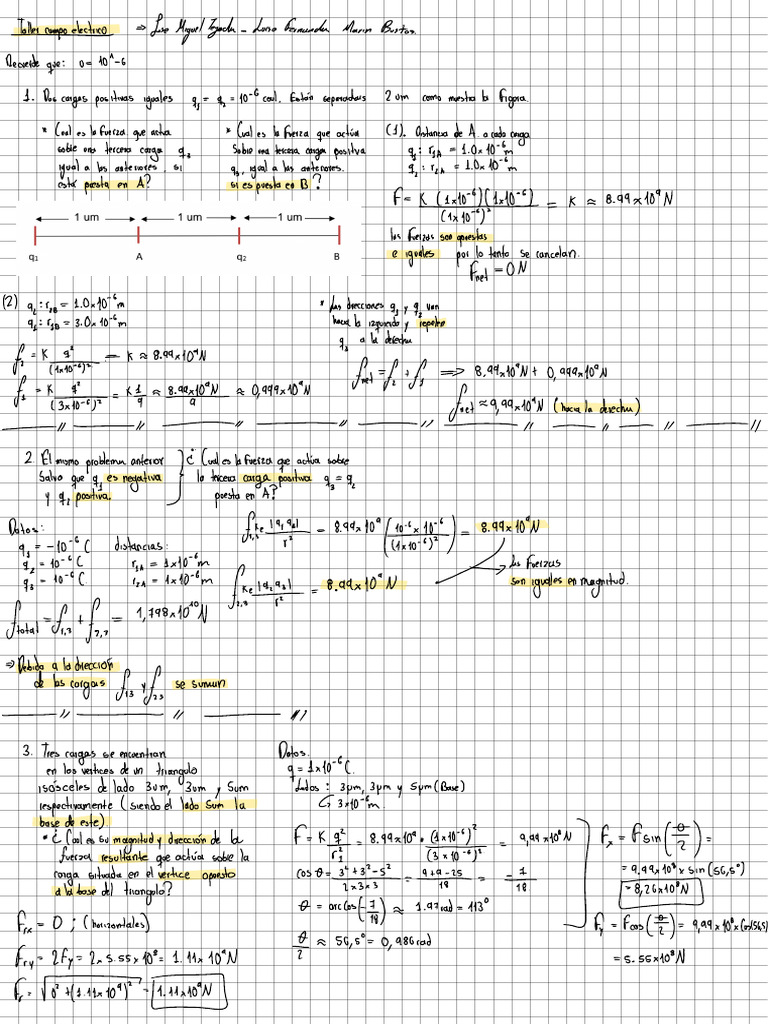 Taller campo electrico ⇒ Luisa Fernanda Marin Bustos.
Recuerde que: 0= 10^-6
1. Dos cargas positivas iguales q₁ = q₂ = 10⁻⁶ coul. Están separadas 2 um como muestra la Figura.
* Cual es la Fuerza que actua
sobre una tercera carga q₃
igual a las anteriores, si
está puesta en A?
* Cual es la Fuerza que actúa
Sobre una tercera carga positiva
q₃, igual a las anteriores.
si es puesta en B?
(1). Distancia de A a cada carga
q₁: r₁A = 1.0×10⁻⁶m
q₂: r₂A = 1.0×10⁻⁶m
F = K (1×10⁻⁶)(1×10⁻⁶) / (1×10⁻⁶)² = K ≈ 8.99×10⁹N
las Fuerzas son opuestas
e iguales por lo tanto se cancelan.
Fnet = 0N
1 um 1 um 1 um
q₁ A q₂ B
(2) q₂: r₂B = 1.0×10⁻⁶m
q₁: r₁B = 3.0×10⁻⁶m
f₂ = K q² / (1×10⁻⁶)² = K ≈ 8.99×10⁹N
f₁ = K q² / (3×10⁻⁶)² = K 1/9 ≈ 8.99×10⁹N / 9 ≈ 0,999×10⁹N
* Las direcciones q₁ y q₂ van
hacia la izquierda y repelen
q₃ a la derecha
fnet = f₂ + f₁ ⇒ 8,99×10⁹N + 0,999×10⁹N
fnet ≈ 9,99×10⁹N (hacia la derecha)
2. El mismo problema anterior
Salvo que q₁ es negativa
y q₂ positiva.
¿ Cual es la Fuerza que actúa sobre
la tercera carga positiva q₃ = q₂
puesta en A?
Datos:
q₁ = -10⁻⁶ C
q₂ = 10⁻⁶ C
q₃ = 10⁻⁶ C.
distancias:
r₁A = 1×10⁻⁶m
r₂A = 1×10⁻⁶m
f₁,₃ Ke |q₁q₃| / r² = 8.99×10⁹ (10⁻⁶ × 10⁻⁶ / (1×10⁻⁶)²) = 8.99×10⁹N
f₂,₃ Ke |q₂q₃| / r² = 8.99×10⁹N
las Fuerzas
son iguales en magnitud.
ftotal = f₁,₃ + f₂,₃ = 1,798×10¹⁰N
⇒ Debido a la dirección
de las cargas f₁₃ y f₂₃ se suman
3. Tres cargas se encuentran
en los vertices de un triangulo
isósceles de lado 3um, 3um y 5um
respectivamente (siendo el lado 5um la
base de este)
* ¿ Cual es su magnitud y dirección de la
fuerza resultante que actúa sobre la
carga situada en el vertice opuesto
a la base del triangulo?
Datos.
q = 1×10⁻⁶ C.
Lados: 3µm, 3µm y 5µm (Base)
↳ 3×10⁻⁶m.
F = K q² / r₁² = 8.99×10⁹ · (1×10⁻⁶)² / (3×10⁻⁶)² = 9,99×10⁸N
cos θ = 3² + 3² - 5² / 2×3×3 = 9+9-25 / 18 = -7/18
θ = arccos(-7/18) ≈ 1.97rad = 113°
θ/2 ≈ 56,5° = 0,986rad
Fx = F sin(θ/2) =
= 9.99×10⁸ × sin(56,5°)
= 8,26×10⁸N
Fy = F cos(θ/2) = 9,99×10⁸ × (cos(56,5)
= 5.55×10⁸N
Frx = 0 ; (horizontales)
Fry = 2Fy = 2×5.55×10⁸ = 1.11×10⁹N
Fr = √0² + (1.11×10⁹)² = 1.11×10⁹N